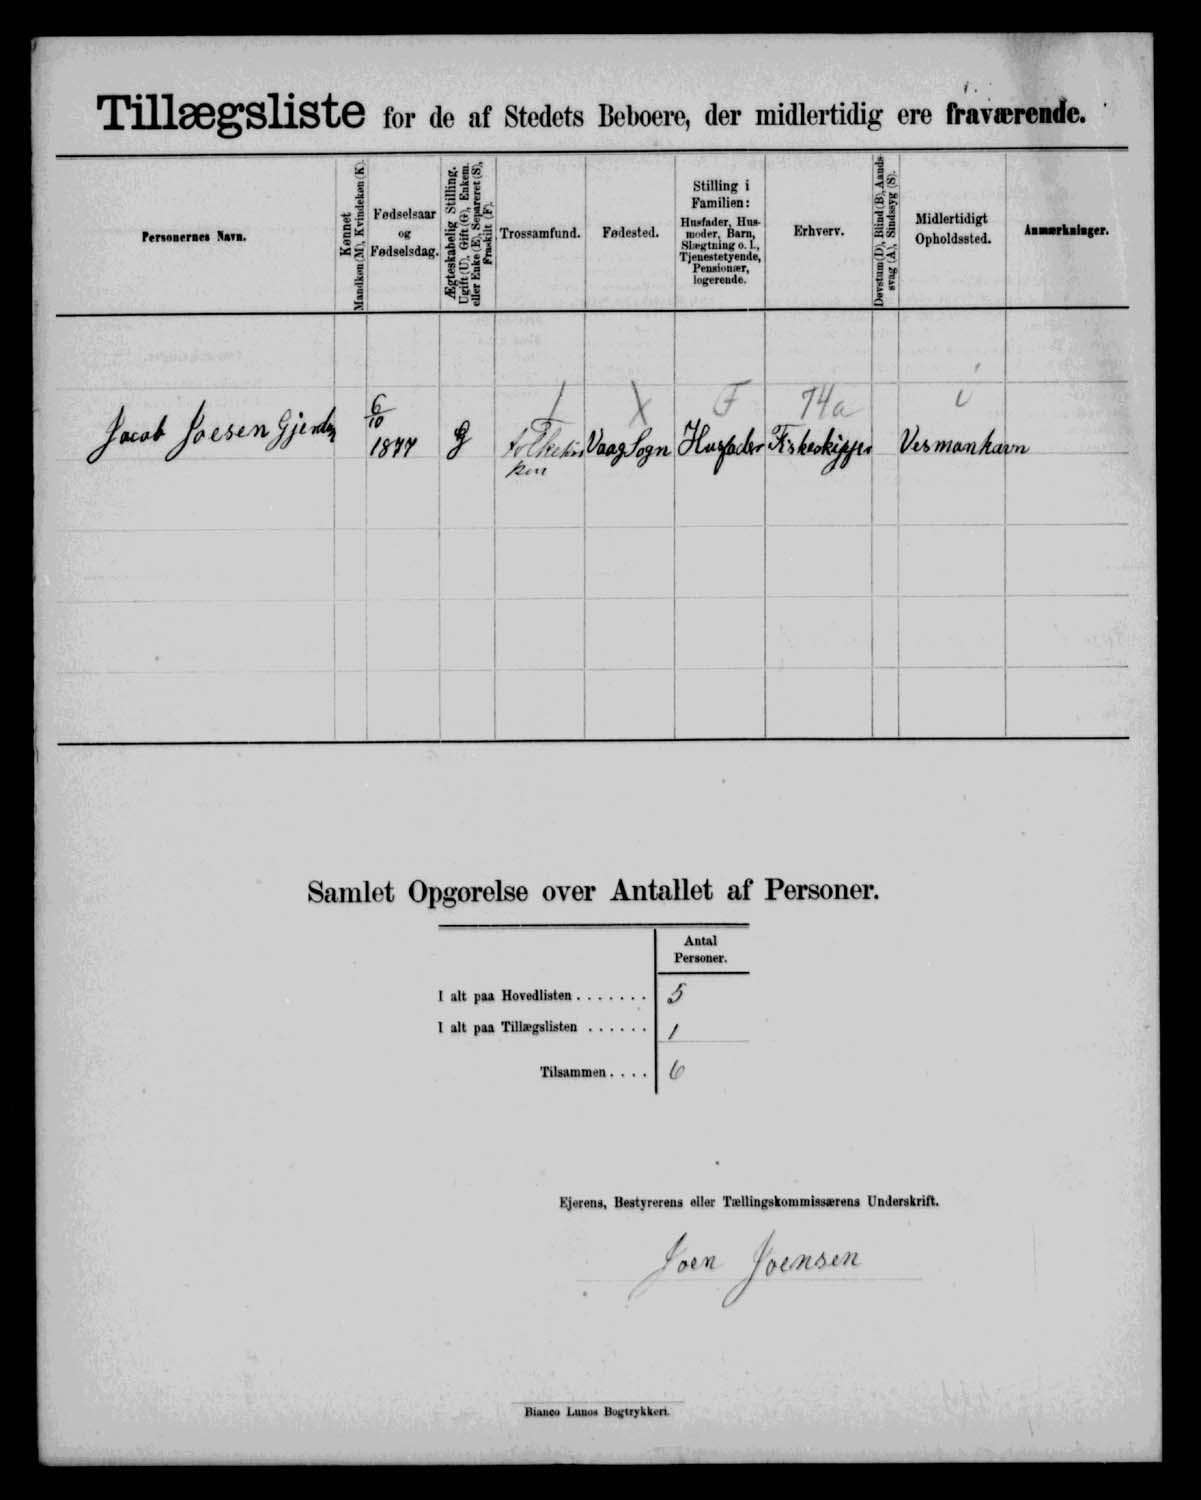 Tillægsliste for de af Stedets Beboere, der midlertidig ere fraværende.
Personernes Navn.
Kønnet
Mandkøn (M), Kvindekøn (K).
Fødselsaar
og
Fødselsdag.
Ægteskabelig Stilling.
Ugift (U), Gift (G), Enkem.
eller Enke (E), Separeret (S),
Fraskilt (F).
Trossamfund.
Fødested.
Stilling i
Familien:
Husfader, Hus-
moder, Barn,
Slægtning o. l.,
Tjenestetyende,
Pensionær,
logerende.
Erhverv.
Døvstum (D), Blind (B), Aands-
svag (A), Sindssyg (S).
Midlertidigt
Opholdssted.
Anmærkninger.
F 74a
Jacob Joesen 6/10 1877 G Folkekir Vaag Sogn Husfader Fiskeskipper Vesmanhavn
ken
Samlet Opgørelse over Antallet af Personer.
Antal
Personer.
I alt paa Hovedlisten . . . . . . . 5
I alt paa Tillægslisten . . . . . . 1
Tilsammen . . . . 6
Ejerens, Bestyrerens eller Tællingskommissærens Underskrift.
Joen Joensen
Bianco Lunos Bogtrykkeri.